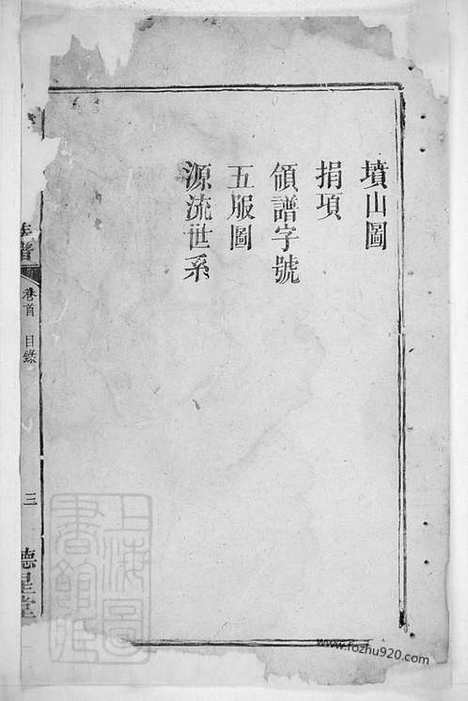 墳山圖
捐項
領譜字號
五服圖
源流世系
譜
卷首
目錄
三
德星堂
上海圖書館藏
www.fozhu920.com